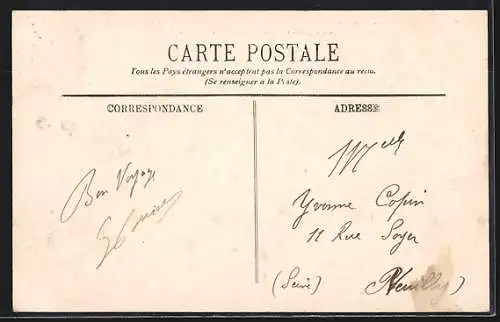 CARTE POSTALE
Tous les Pays étrangers n'acceptent pas la Correspondance au recto.
(Se renseigner à la Poste).
CORRESPONDANCE
ADRESSE
Bon Voyage
Melle
Yvonne Copin
11 Rue Soyer
(Seine) Neuilly)